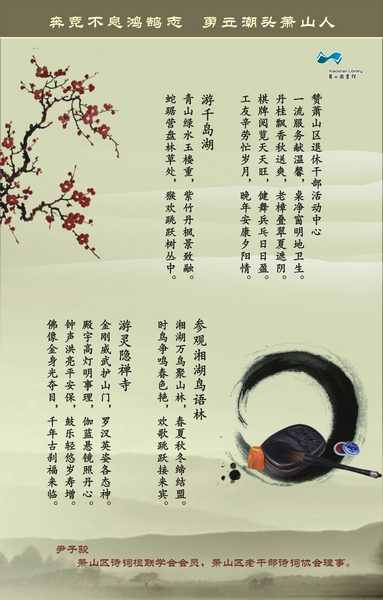 奔竞不息鸿鹄志　勇立潮头萧山人
Xiaoshan Library
萧山图书馆
赞萧山区退休干部活动中心
一流服务献温馨，桌净窗明地卫生。
丹桂飘香秋送爽，老樟叠翠夏遮阴。
棋牌阅览天天旺，健舞乒乓日日盈。
工友辛劳忙岁月，晚年安康夕阳情。
游千岛湖
青山绿水玉楼重，紫竹丹枫景致融。
蛇踞营盘林草处，猴欢跳跃树丛中。
参观湘湖鸟语林
湘湖万鸟聚山林，春夏秋冬缔结盟。
时鸟争鸣春色艳，欢歌跳跃接来宾。
游灵隐禅寺
金刚威武护山门，罗汉英姿各态神。
殿宇高灯明事理，伽蓝悬镜照丹心。
钟声洪亮平安保，鼓乐轻悠岁寿增。
佛像金身光夺目，千年古刹福来临。
尹子骏
萧山区诗词楹联学会会员，萧山区老干部诗词协会理事。